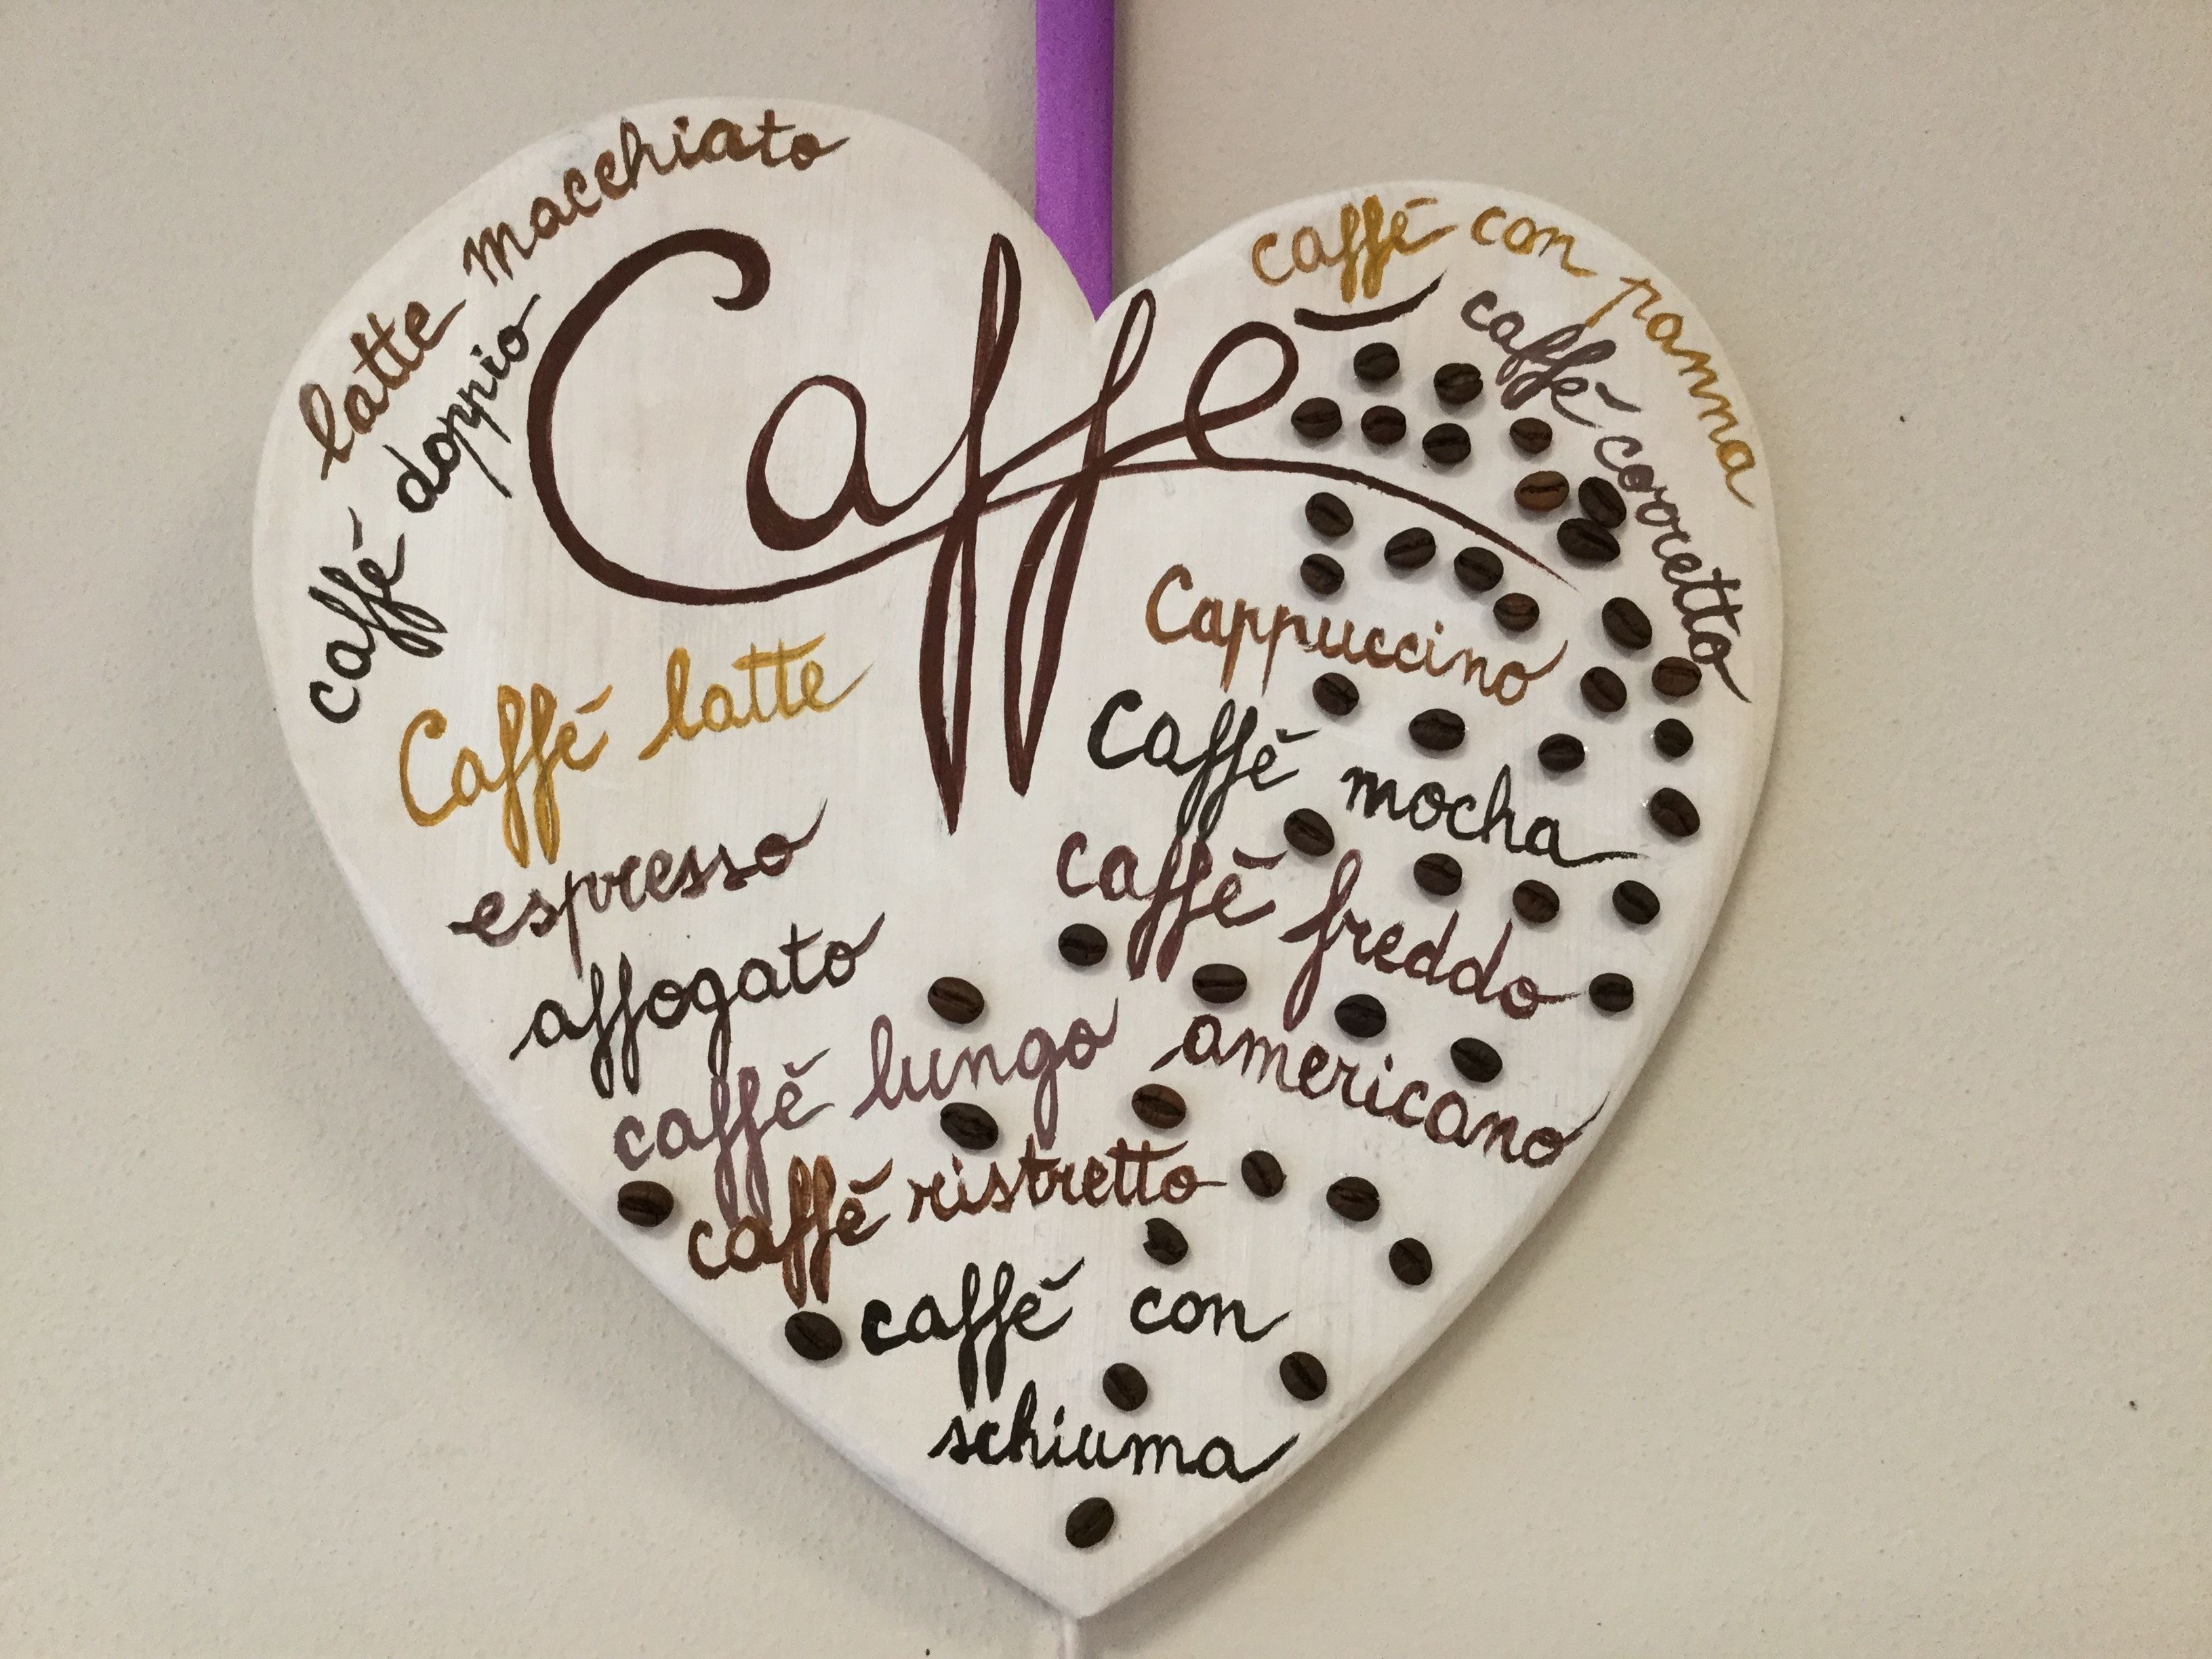 latte macchiato
caffé doppio
Caffē
caffé con panna
caffé corretto
Caffé latte
Cappuccino
Caffé mocha
espresso
caffē freddo
affogato
americano
caffē lungo
caffē ristretto
caffé con
schiuma